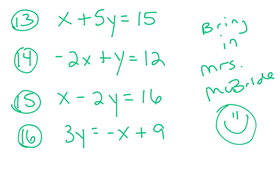 13 x + 5y = 15
14 -2x + y = 12
15 x - 2y = 16
16 3y = -x + 9
Bring
in
mrs.
McBride